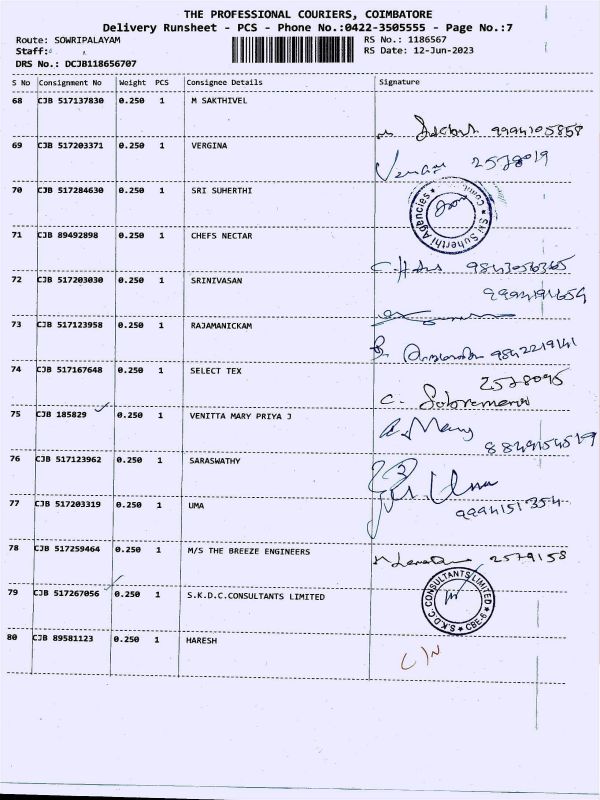 THE PROFESSIONAL COURIERS, COIMBATORE
Delivery Runsheet - PCS - Phone No.:0422-3505555 - Page No.:7
Route: SOWRIPALAYAM RS No.: 1186567
Staff: RS Date: 12-Jun-2023
DRS No.: DCJB118656707
S No Consignment No Weight PCS Consignee Details Signature
68 CJB 517137830 0.250 1 M SAKTHIVEL
9994105858
69 CJB 517203371 0.250 1 VERGINA
2578019
70 CJB 517284630 0.250 1 SRI SUHERTHI
★ Sri Suherthi Agencies ★
71 CJB 89492898 0.250 1 CHEFS NECTAR
9843056365
72 CJB 517203030 0.250 1 SRINIVASAN
9994191654
73 CJB 517123958 0.250 1 RAJAMANICKAM
9842219141
74 CJB 517167648 0.250 1 SELECT TEX
2578095
C.
75 CJB 185829 0.250 1 VENITTA MARY PRIYA J
A. Mary
8849154519
76 CJB 517123962 0.250 1 SARASWATHY
77 CJB 517203319 0.250 1 UMA
Uma
9994151354
78 CJB 517259464 0.250 1 M/S THE BREEZE ENGINEERS
2579158
79 CJB 517267056 0.250 1 S.K.D.C.CONSULTANTS LIMITED
S.K.D.C. CONSULTANTS LIMITED ★ CBE-6 ★
80 CJB 89581123 0.250 1 HARESH
C/N